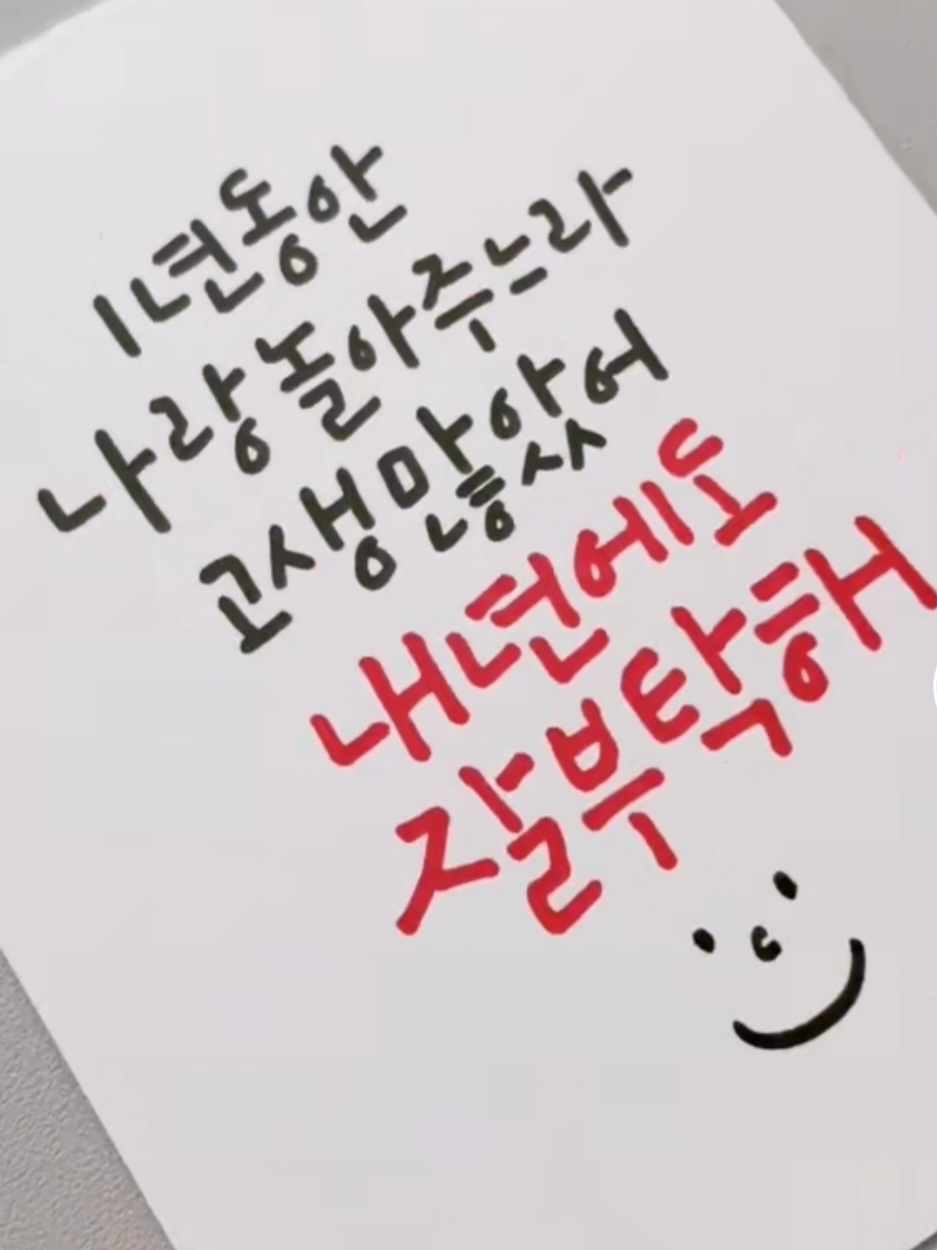 1년동안
나랑놀아주느라
고생많았어
내년에도
잘부탁해